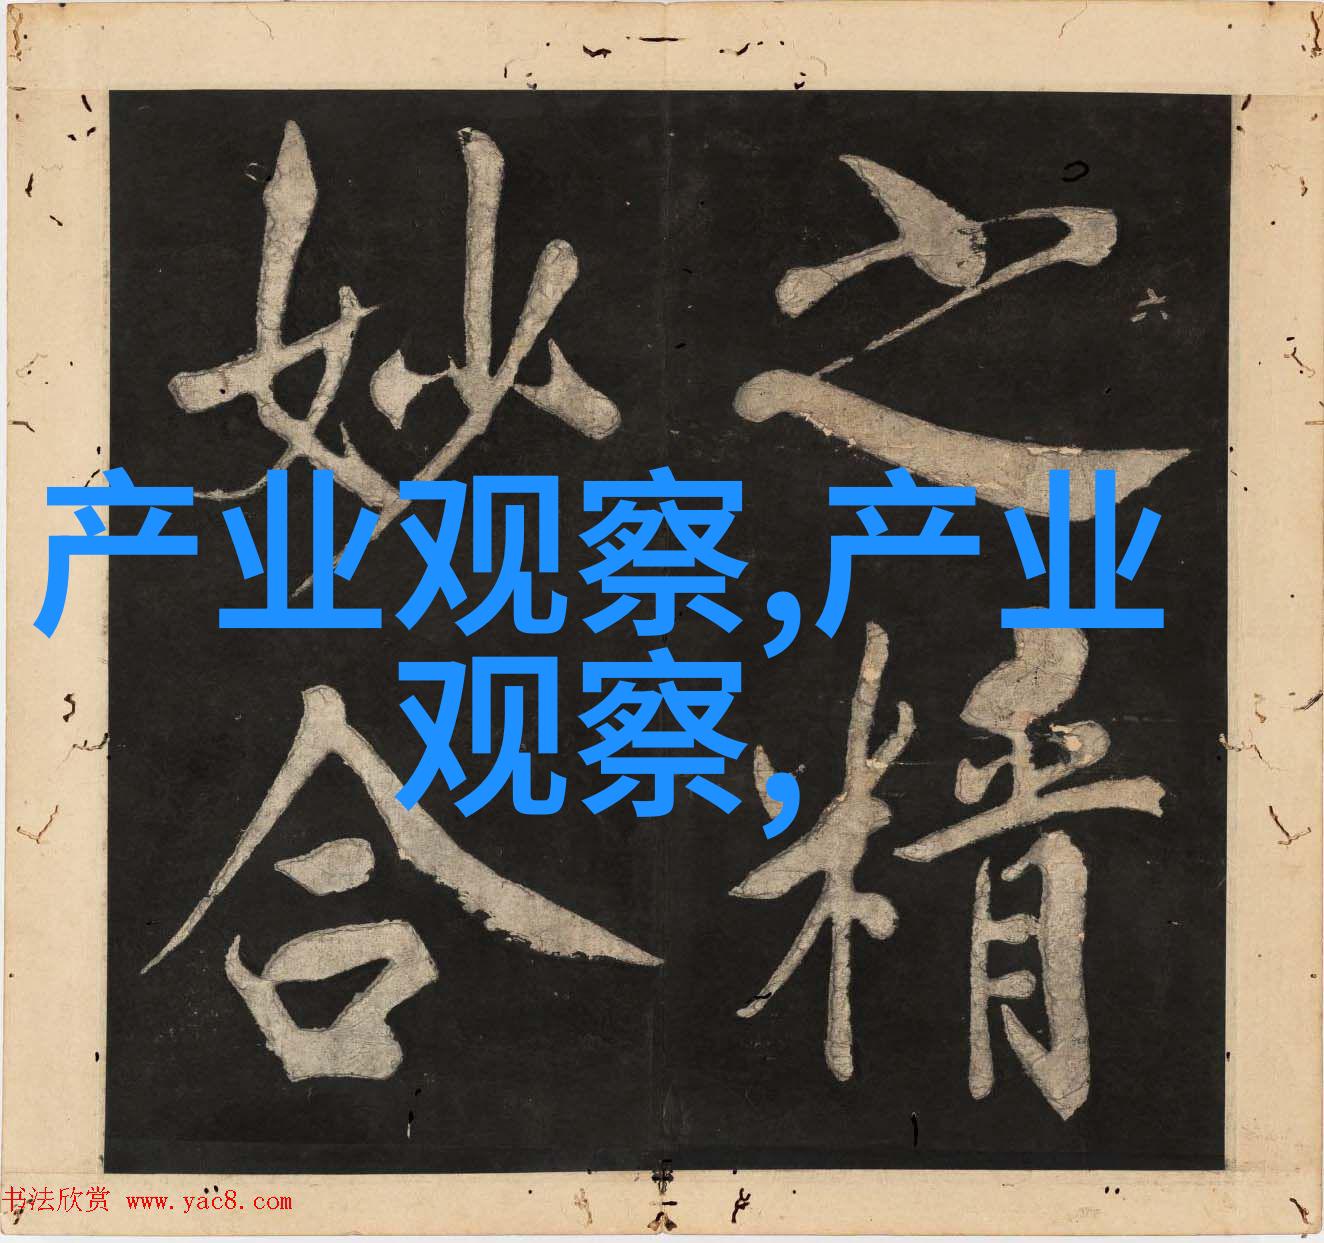 之精
妙合
六
产业观察,产业
观察,
书法欣赏 www.yac8.com